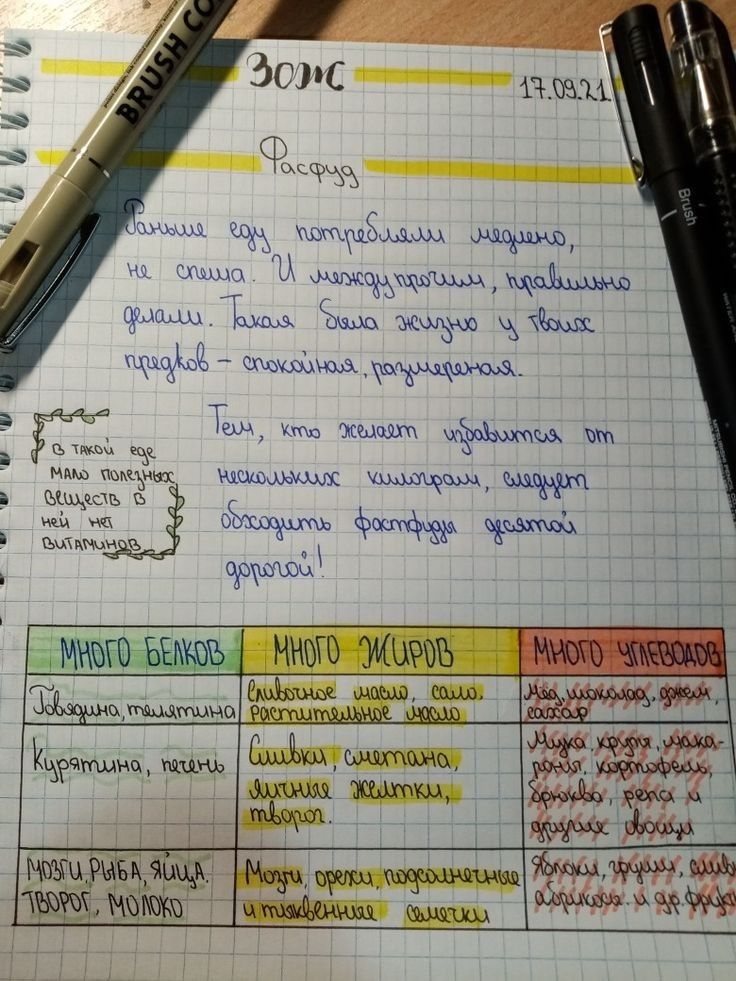 BRUSH CO
ЗОЖ
17.09.21
Фасфуд
Brush
Раньше еду потребляли медлено,
не спеша. И междупрочим, правильно
делали. Такая была жизнь у твоих
предков - спокойная, размереная.
Тем, кто желает избавится от
нескольких килограм, следует
обходить фастфуды десятой
дорогой!
в такой еде
мало полезных
веществ в
ней нет
витаминов
МНОГО БЕЛКОВ МНОГО ЖИРОВ МНОГО УГЛЕВОДОВ
Говядина, телятина
Сливочное масло, сало,
растительное масло
Мёд, шоколад, джем,
сахар
Курятина, печень
Сливки, сметана,
яичные желтки,
творог.
Мука крупы, мака-
роны, картофель,
брюква, репа и
другие овощи
МОЗГИ, РЫБА, ЯЙЦА.
ТВОРОГ, МОЛОКО
Мозги, орехи, подсолнечные
и тыквенные семечки
Яблоки, груши, слив
абрикосы. и др. фрукт